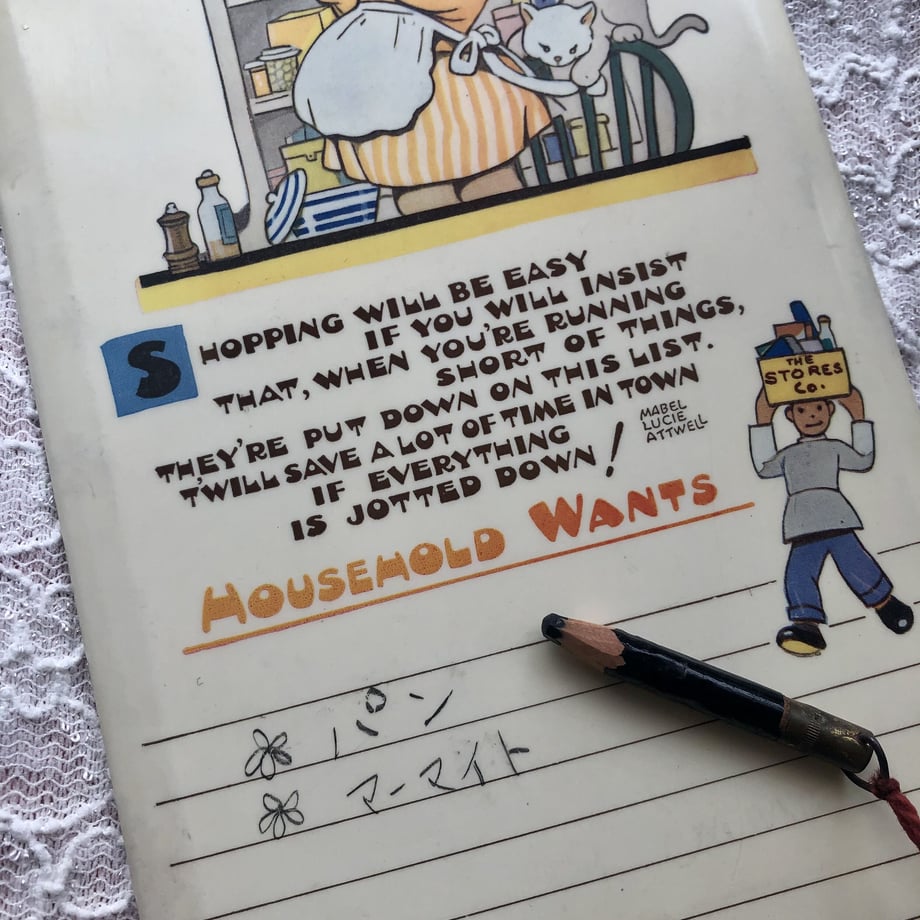 SHOPPING WILL BE EASY
IF YOU WILL INSIST
THAT, WHEN YOU'RE RUNNING
SHORT OF THINGS,
THEY'RE PUT DOWN ON THIS LIST.
T'WILL SAVE A LOT OF TIME IN TOWN
IF EVERYTHING
IS JOTTED DOWN!
MABEL
LUCIE
ATTWELL
THE
STORES
Co.
HOUSEHOLD WANTS
パン
マーマイト